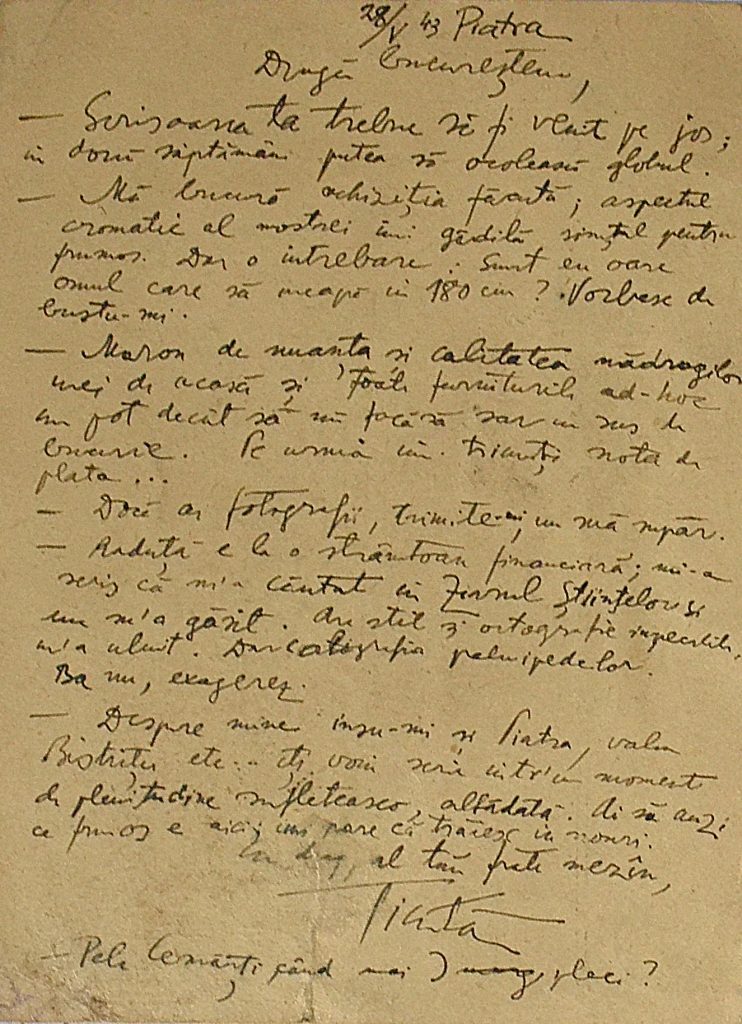 28/V 43 Piatra
Dragă bucureștene,
— Scrisoarea ta trebue să fi venit pe jos;
în două săptămâni putea să ocolească globul.
— Mă bucură achiziția făcută; aspectul
cromatic al mostrei îmi gâdilă simțul pentru
frumos. Dar o întrebare: Sunt eu oare
omul care să încapă în 180 cm? Vorbesc de
bustu-mi.
— Maron de nuanța și calitatea nădragilor
mei de acasă și toate furniturile ad-hoc
nu pot decât să mă facă să sar în sus de
bucurie. Pe urmă îmi trimiți nota de
plată...
— Dacă ai fotografii, trimite-mi, nu mă supăr.
— Răduță e la o strâmtoare financiară; mi-a
scris că m'a căutat în Ziarul Științelor și
nu m'a găsit. Are stil și ortografie impecabilă,
m'a uluit. Dar caligrafia palmipedelor.
Ba nu, exagerez.
— Despre mine însu-mi și Piatra, valea
Bistriței etc... îți voiu scrie într'un moment
de plenitudine sufletească, altădată. Ai să auzi
ce frumos e aici; îmi pare că trăiesc în nouri.
Cu drag, al tău frate mezin,
— Pela Cernăuți când mai pleci?